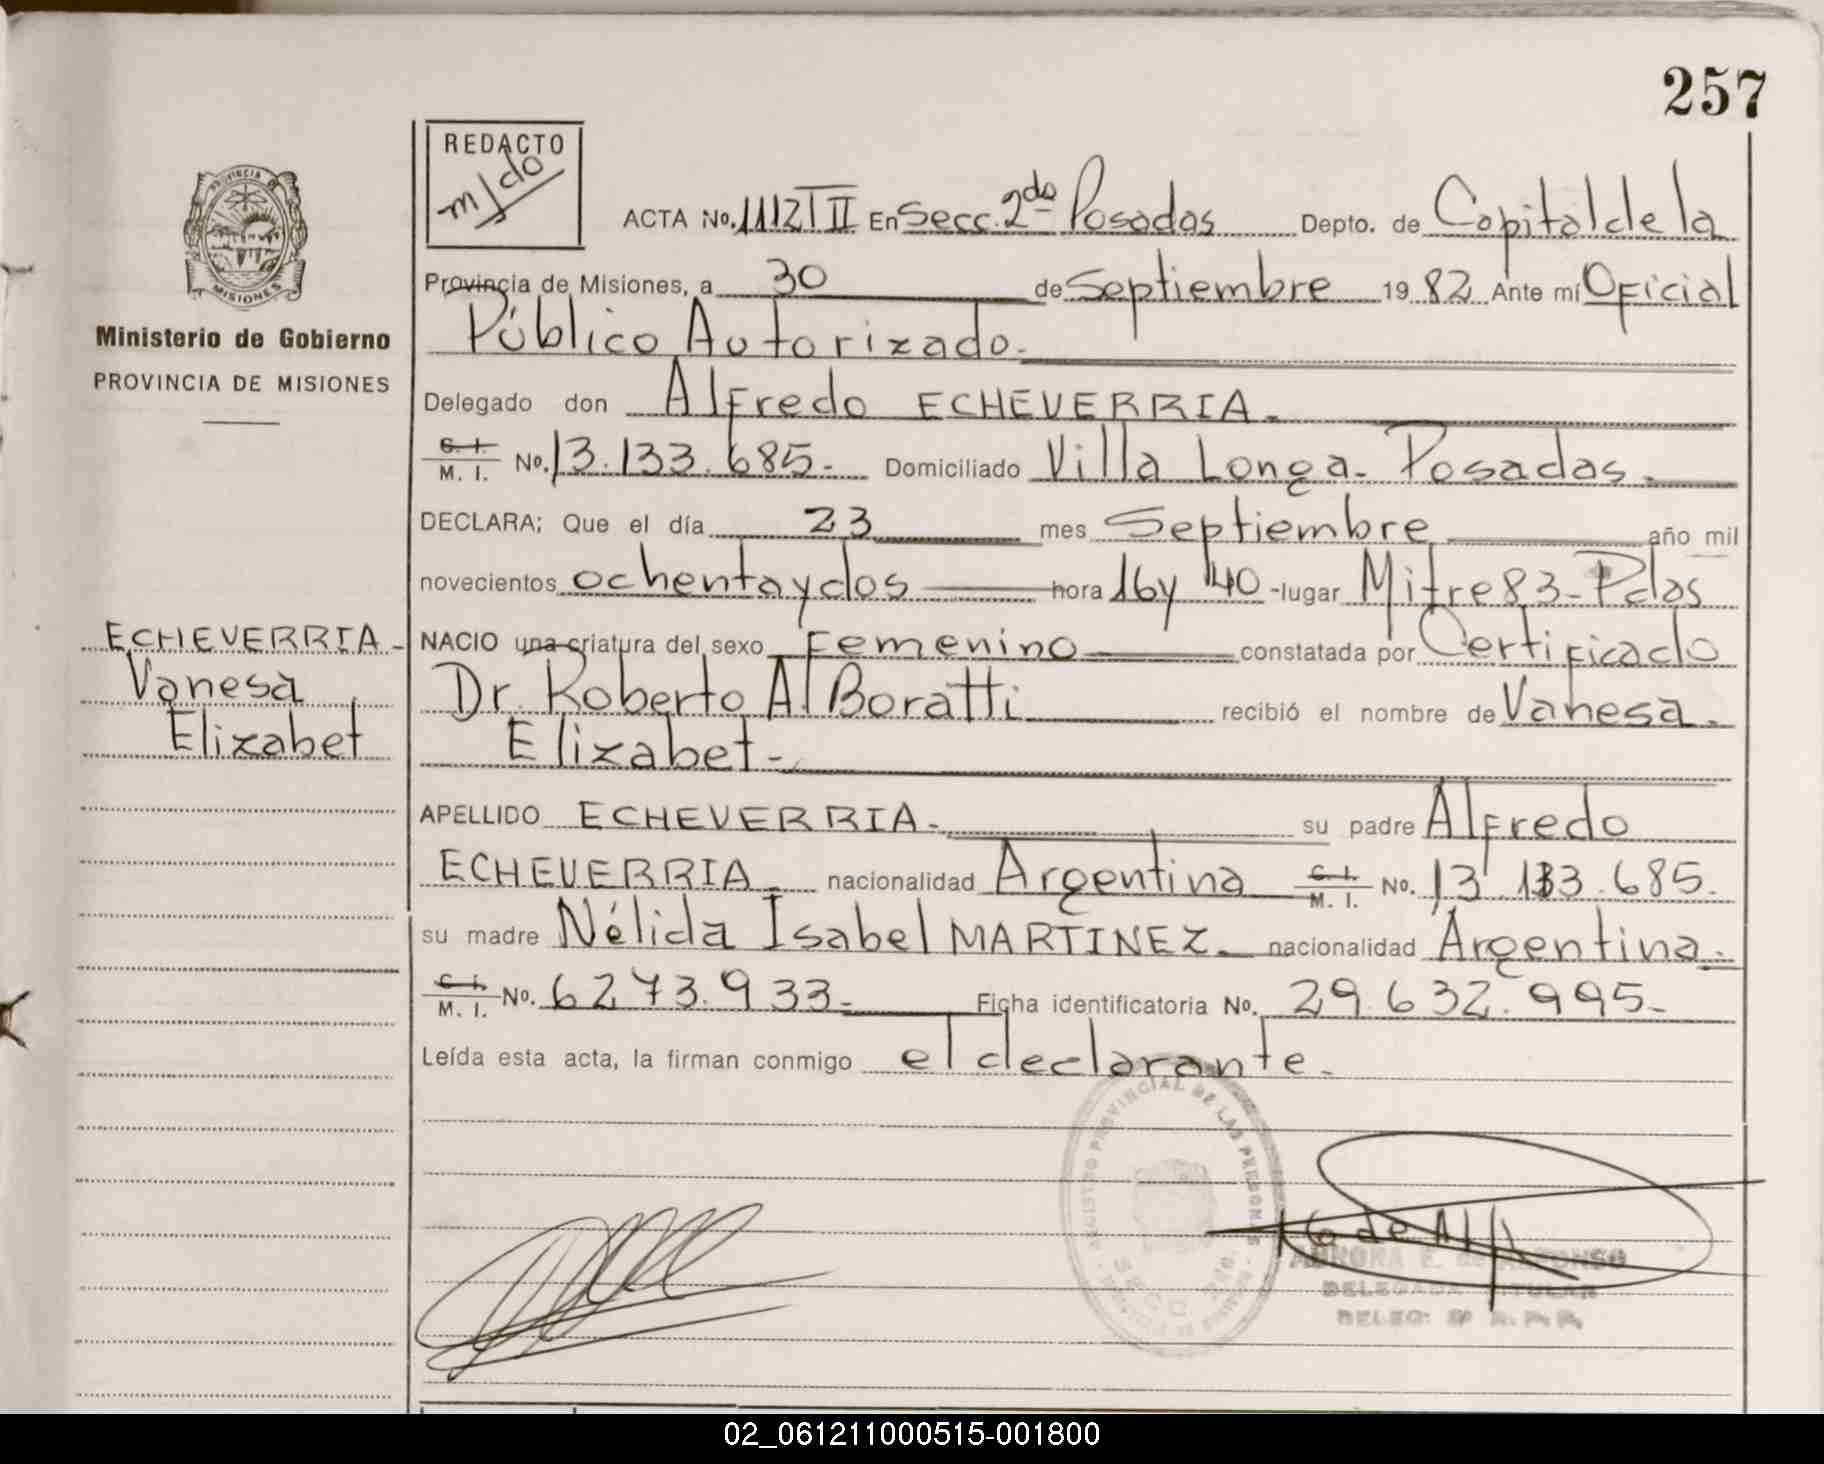 257
REDACTO
m/do
PROVINCIA DE
MISIONES
Ministerio de Gobierno
PROVINCIA DE MISIONES
ACTA No. 1112 T II En Secc. 2da Posadas Depto. de Capital de la
Provincia de Misiones, a 30 de Septiembre 1982 Ante mí Oficial
Público Autorizado.-
Delegado don Alfredo ECHEVERRIA.-
C. I. M. I. No. 13.133.685.- Domiciliado Villa Longa - Posadas.-
DECLARA; Que el día 23 mes Septiembre año mil
novecientos ochenta y dos hora 16 y 40 - lugar Mitre 83 - Pdas
NACIO una criatura del sexo Femenino constatada por Certificado
Dr. Roberto Al Boratti recibió el nombre de Vanesa.
Elizabet.-
APELLIDO ECHEVERRIA.- su padre Alfredo
ECHEVERRIA.- nacionalidad Argentina C. I. M. I. No. 13.133.685.
su madre Nélida Isabel MARTINEZ.- nacionalidad Argentina.-
C. I. M. I. No. 6273.933.- Ficha identificatoria No. 29.632.995.-
Leída esta acta, la firman conmigo el declarante.-
ECHEVERRIA -
Vanesa
Elizabet
REGISTRO PROVINCIAL DE LAS PERSONAS
AURORA E. de ALFONSO
DELEGADA TITULAR
02_061211000515-001800